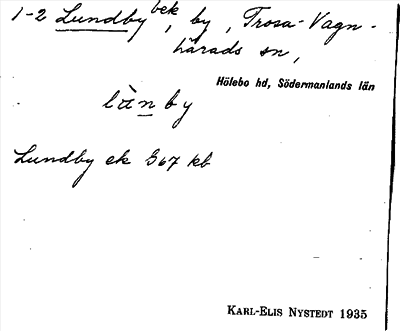 1-2 Lundby bek, by, Trosa-Vagn-
härads sn,
Hölebo hd, Södermanlands län
lànby
Lundby ek G67 kb
KARL-ELIS NYSTEDT 1935